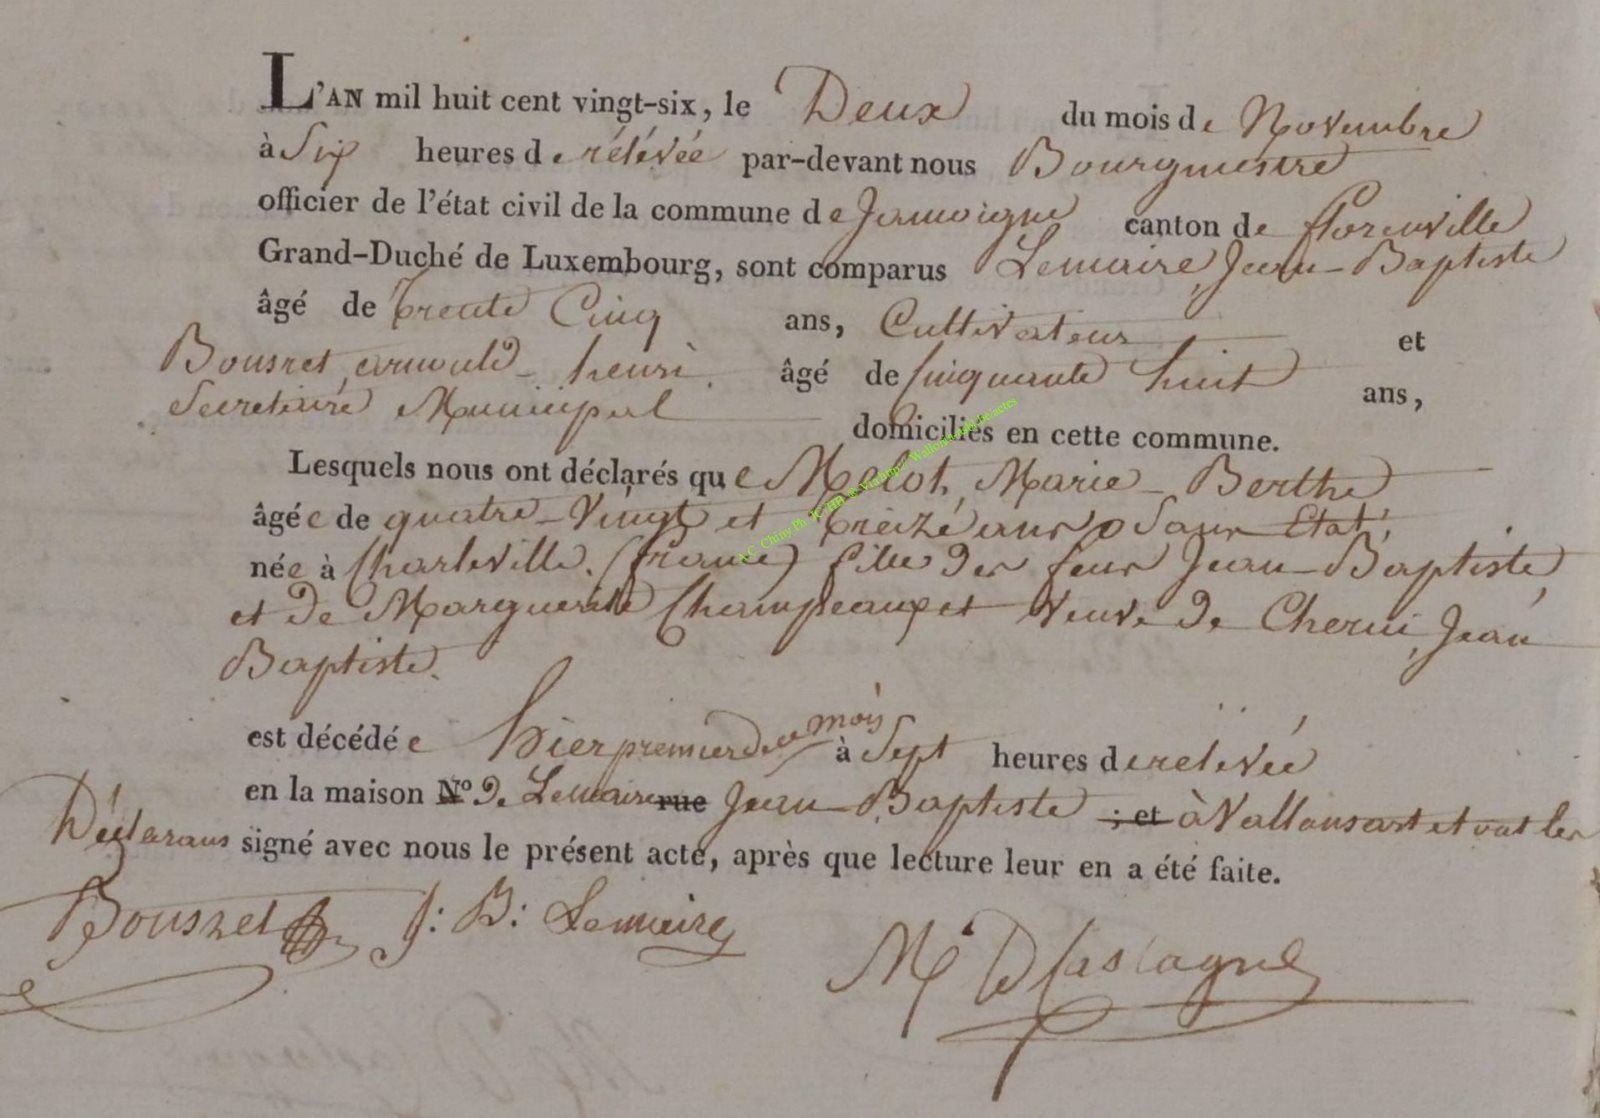 L'AN mil huit cent vingt-six, le Deux du mois de Novembre
à Six heures de rélévée par-devant nous Bourgmestre
officier de l'état civil de la commune de Jamoigne canton de florenville
Grand-Duché de Luxembourg, sont comparus Lemaire, Jean-Baptiste
âgé de trente Cinq ans, Cultivateur et
Bousret, arnould-henri. âgé de Cinquante huit ans,
Secretaire Municipal domiciliés en cette commune.
Lesquels nous ont déclarés que Melot, Marie-Berthe
âgée de quatre-Vingt et treize ans Sans Etat,
née à Charleville. (france) fille des feux Jean-Baptiste
et de Marguerite Champeaux et veuve de Cherui, Jean
Baptiste.
est décédée hier premier de ce mois à Sept heures de rélévée
en la maison N° De Lemaire rue Jean-Baptiste ; et à Vallansart et ont les
Déclarans signé avec nous le présent acte, après que lecture leur en a été faite.
Bousret J: B: Lemaire
A.C. Chiny Ph.